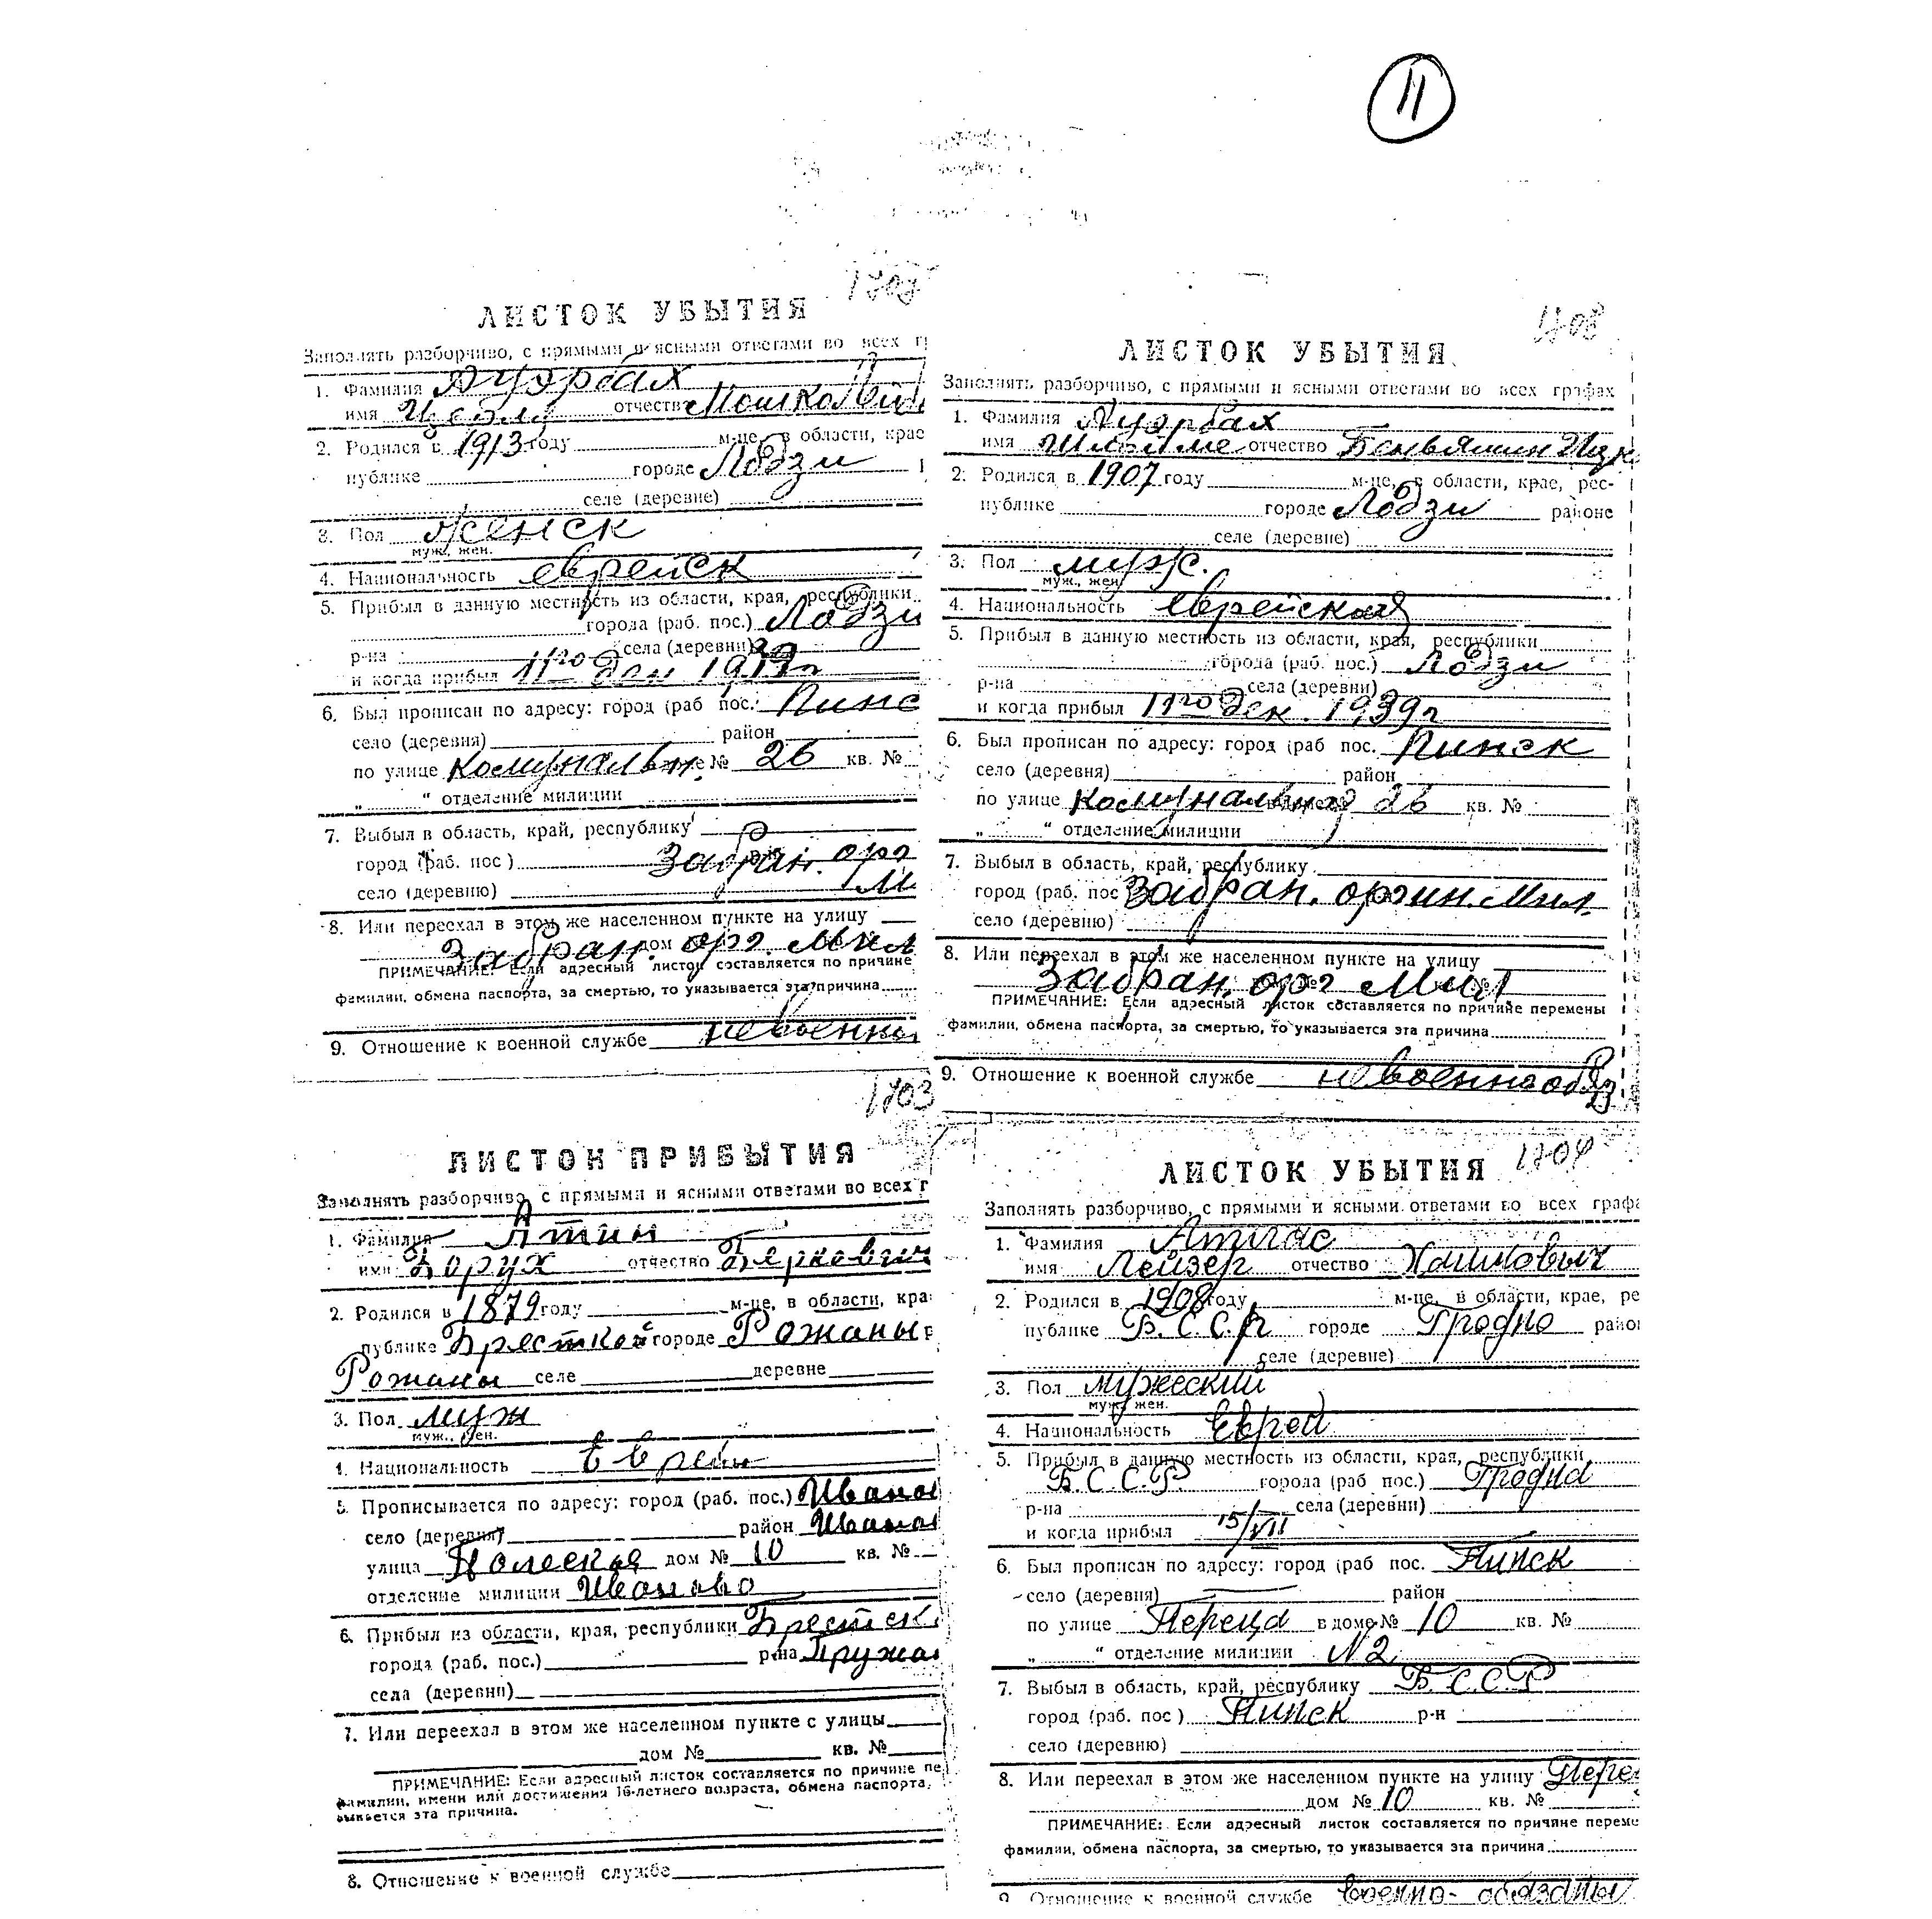 11
1707
ЛИСТОК УБЫТИЯ
Заполнять разборчиво, с прямыми и ясными ответами во всех г
1. Фамилия Ауэрбах
имя отчество Мошко
2. Родился в 1913 году м-це, в области, крае
публике городе Лодзи
селе (деревне)
3. Пол женск
муж., жен.
4. Национальность еврейск
5. Прибыл в данную местность из области, края, республики
города (раб. пос.) Лодзи
р-на села (деревни)
и когда прибыл 11го Дек 1939г
6. Был прописан по адресу: город (раб пос. Пинс
село (деревня) район
по улице Комунальн. № 26 кв. №
„ “ отделение милиции
7. Выбыл в область, край, республику
город (раб. пос ) Забран. орг
село (деревню) Ми
8. Или переехал в этом же населенном пункте на улицу
Забран. дом орг. Мил
ПРИМЕЧАНИЕ: Если адресный листок составляется по причине
фамилии, обмена паспорта, за смертью, то указывается эта причина
9. Отношение к военной службе невоенно
1708
ЛИСТОК УБЫТИЯ
Заполнять разборчиво, с прямыми и ясными ответами во всех графах
1. Фамилия Ауэрбах
имя Шлойме отчество Беньямин Ицк
2. Родился в 1907 году м-це, в области, крае, рес-
публике городе Лодзи районе
селе (деревне)
3. Пол муж.
муж., жен.
4. Национальность еврейская
5. Прибыл в данную местность из области, края, республики
города (раб. пос.) Лодзи
р-на села (деревни)
и когда прибыл 11го Дек. 1939г
6. Был прописан по адресу: город (раб пос. Пинск
село (деревня) район
по улице Комунальная 26 кв. №
„ “ отделение милиции
7. Выбыл в область, край, республику
город (раб. пос Забран. оргин. Мил.
село (деревню)
8. Или переехал в этом же населенном пункте на улицу
Забран. орг Мил
ПРИМЕЧАНИЕ: Если адресный листок составляется по причине перемены
фамилии, обмена паспорта, за смертью, то указывается эта причина
9. Отношение к военной службе невоеннообяз
1703
ЛИСТОК ПРИБЫТИЯ
Заполнять разборчиво, с прямыми и ясными ответами во всех г
1. Фамилия Атин
имя Борух отчество Беркович
2. Родился в 1879 году м-це, в области, кра
публике Брестской городе Рожаны р
Рожаны селе деревне
3. Пол муж
муж., жен.
4. Национальность Еврей
5. Прописывается по адресу: город (раб. пос.) Иванов
село (деревня) район Иванов
улица Полеская дом № 10 кв. №
отделение милиции Иваново
6. Прибыл из области, края, республики Брестск
города (раб. пос.) р-на Пружан
села (деревни)
7. Или переехал в этом же населенном пункте с улицы
дом № кв. №
ПРИМЕЧАНИЕ: Если адресный листок составляется по причине пе
фамилии, имени или достижения 16-летнего возраста, обмена паспорта,
зывается эта причина.
8. Отношение к военной службе
1704
ЛИСТОК УБЫТИЯ
Заполнять разборчиво, с прямыми и ясными ответами во всех графа
1. Фамилия Атлас
имя Лейзер отчество Хаимович
2. Родился в 1908 году м-це, в области, крае, ре
публике Б.С.С.Р городе Гродно район
селе (деревне)
3. Пол мужеский
муж., жен.
4. Национальность Еврей
5. Прибыл в данную местность из области, края, республики
Б.С.С.Р. города (раб пос.) Гродна
р-на села (деревни)
и когда прибыл 15/VII
6. Был прописан по адресу: город (раб пос. Пинск
село (деревня) район
по улице Переца в доме № 10 кв. №
„ “ отделение милиции N2
7. Выбыл в область, край, республику Б.С.С.Р
город (раб. пос ) Пинск р-н
село (деревню)
8. Или переехал в этом же населенном пункте на улицу Пере
дом № 10 кв. №
ПРИМЕЧАНИЕ: Если адресный листок составляется по причине переме
фамилии, обмена паспорта, за смертью, то указывается эта причина
9 Отношение к военной службе военно-обязаны